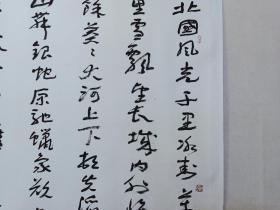 北國風光千里冰封萬
里雪飄望長城內外惟
餘莽々大河上下頓失滔
山舞銀蛇原馳蠟象欲